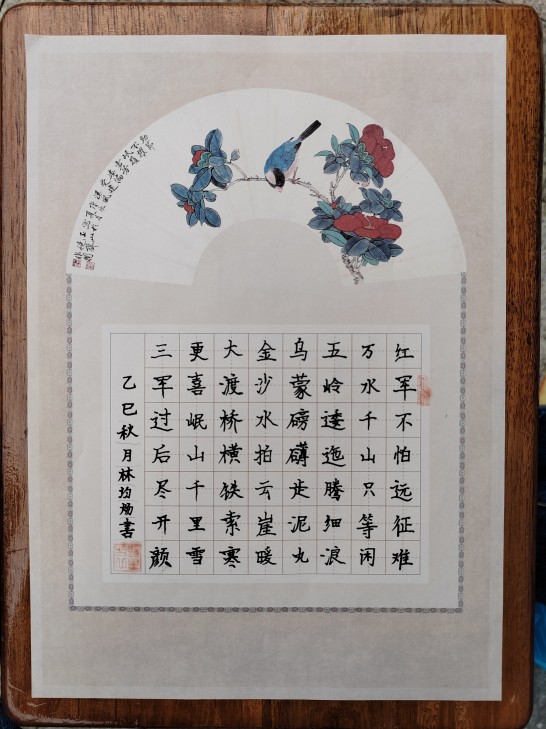 红军不怕远征难
万水千山只等闲
五岭逶迤腾细浪
乌蒙磅礴走泥丸
金沙水拍云崖暖
大渡桥横铁索寒
更喜岷山千里雪
三军过后尽开颜
乙巳秋月林均书